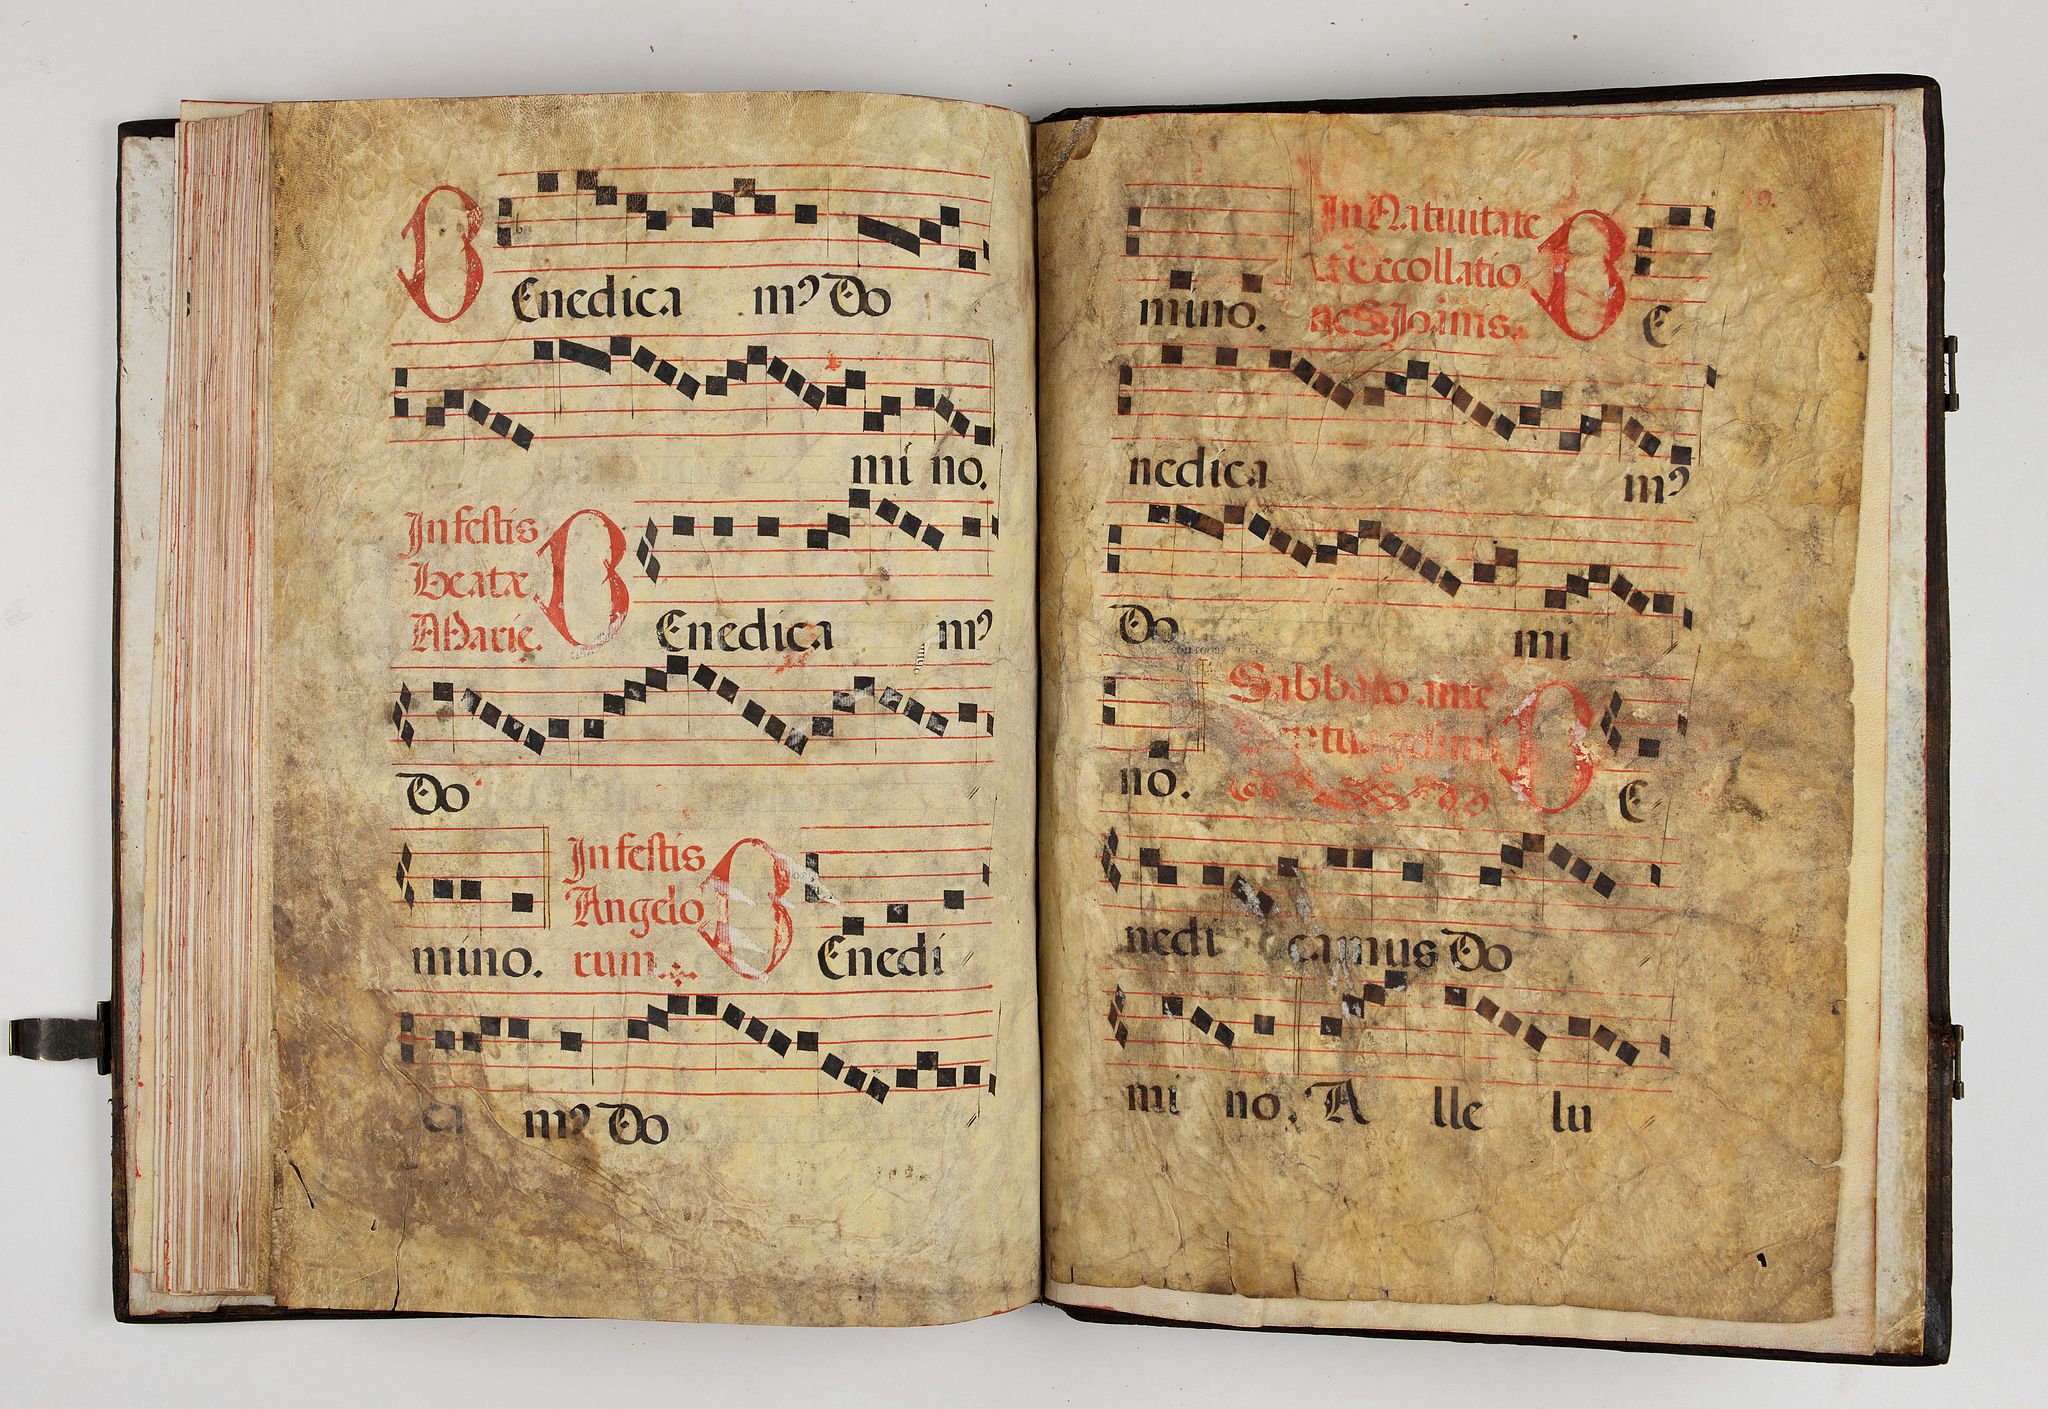 BEnedica mꝰ Do
mi no.
In festis
Beatæ
Marie.
BEnedica mꝰ
Do
mino.
In festis
Angelo
rum.
BEnedi
ca mꝰ Do
mino.
In Natiuitate
et Decollatio
ne S Joānis.
BE
nedica mꝰ
Do mi
no.
Sabbato ante
Septuagesimā
BE
nedi camus Do
mi no. A lle lu